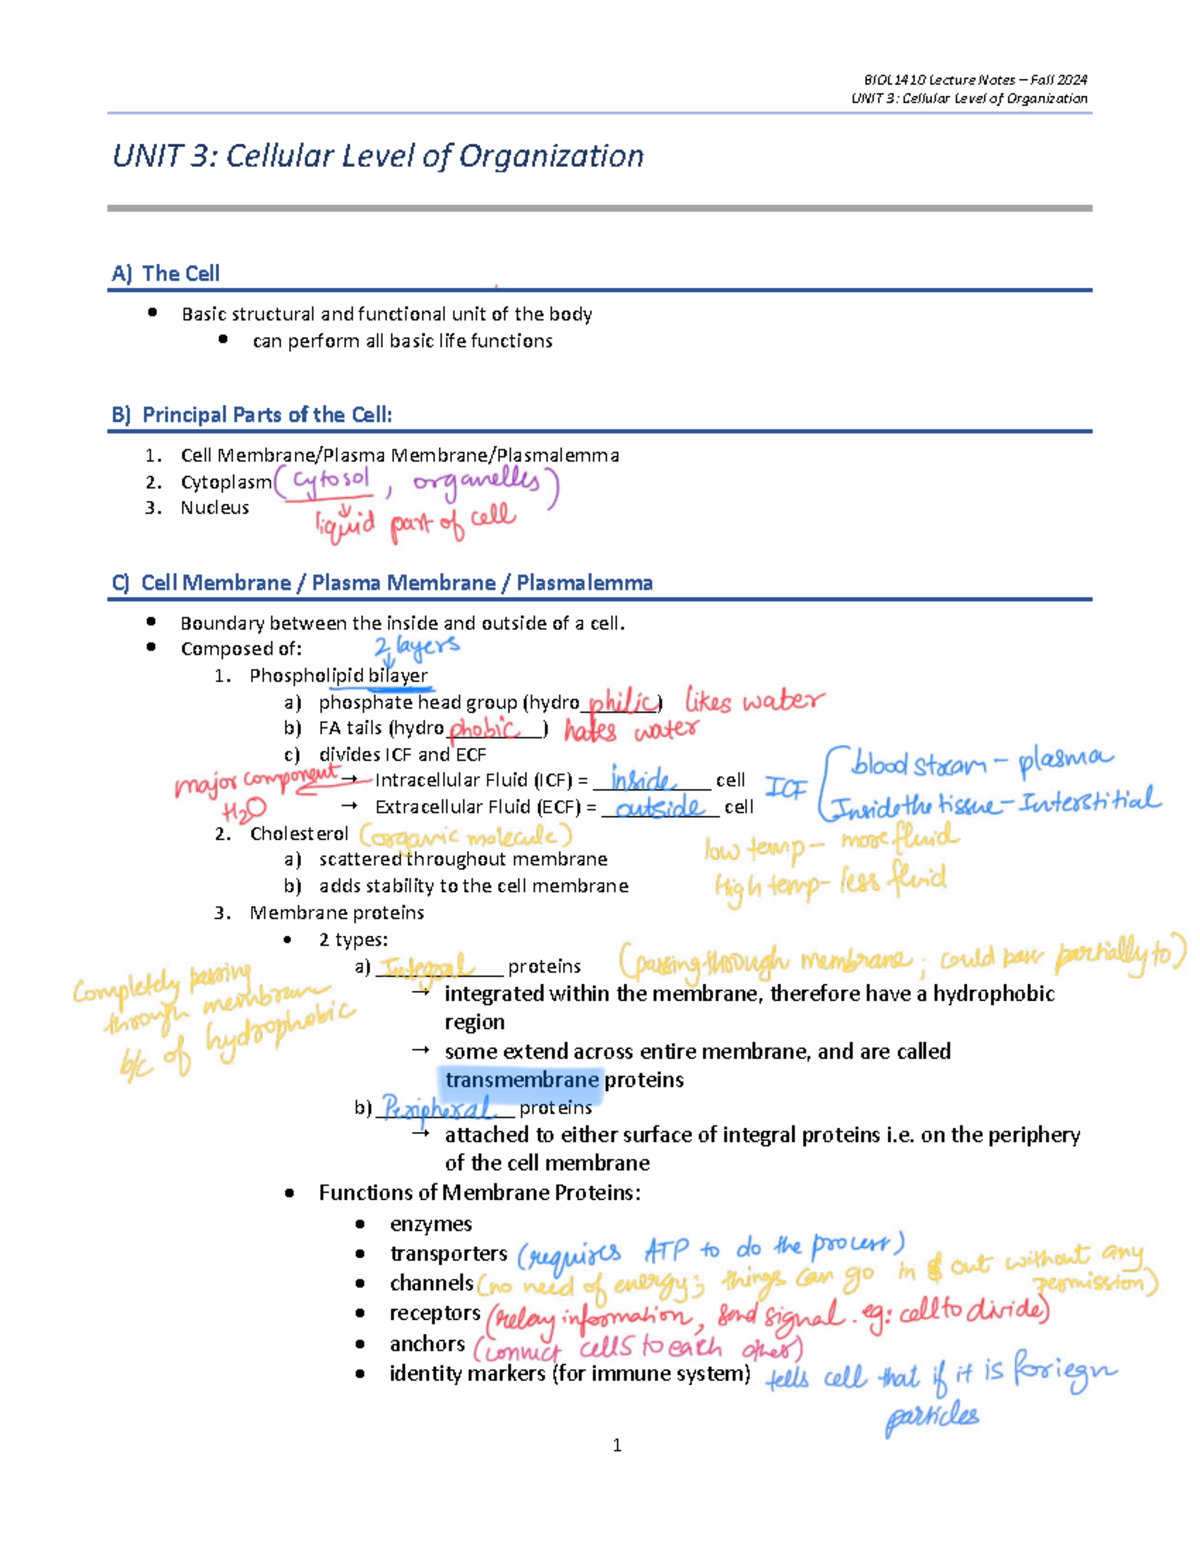 BIOL1410 Lecture Notes – Fall 2024
UNIT 3: Cellular Level of Organization
UNIT 3: Cellular Level of Organization
A) The Cell
• Basic structural and functional unit of the body
• can perform all basic life functions
B) Principal Parts of the Cell:
1. Cell Membrane/Plasma Membrane/Plasmalemma
2. Cytoplasm (cytosol, organelles)
3. Nucleus
↓
liquid part of cell
C) Cell Membrane / Plasma Membrane / Plasmalemma
• Boundary between the inside and outside of a cell.
• Composed of:
2 layers
↓
1. Phospholipid bilayer
a) phosphate head group (hydro philic) likes water
b) FA tails (hydro phobic) hates water
c) divides ICF and ECF
major component
H2O
→ Intracellular Fluid (ICF) = inside cell
→ Extracellular Fluid (ECF) = outside cell
ICF
blood stream – plasma
Inside the tissue – Interstitial
2. Cholesterol (organic molecule)
low temp – more fluid
High temp – less fluid
a) scattered throughout membrane
b) adds stability to the cell membrane
3. Membrane proteins
• 2 types:
a) Integral proteins (passing through membrane; could pass partially to)
completely passing
through membrane
b/c of hydrophobic
→ integrated within the membrane, therefore have a hydrophobic
region
→ some extend across entire membrane, and are called
transmembrane proteins
b) Peripheral proteins
→ attached to either surface of integral proteins i.e. on the periphery
of the cell membrane
• Functions of Membrane Proteins:
• enzymes
• transporters (requires ATP to do the process)
• channels (no need of energy; things can go in & out without any
permission)
• receptors (relay information, send signal. eg: cell to divide)
• anchors (connect cells to each other)
• identity markers (for immune system) tells cell that if it is foriegn
particles
1